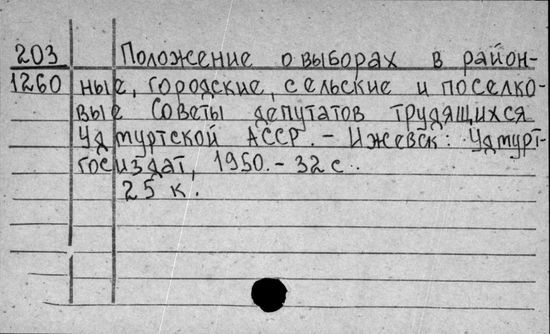 203 Положение о выборах в район-
1260 ные, городские, сельские и поселко-
вые Советы депутатов трудящихся
Удмуртской АССР. - Ижевск: Удмурт-
госиздат, 1950. - 32 с.
25 к.